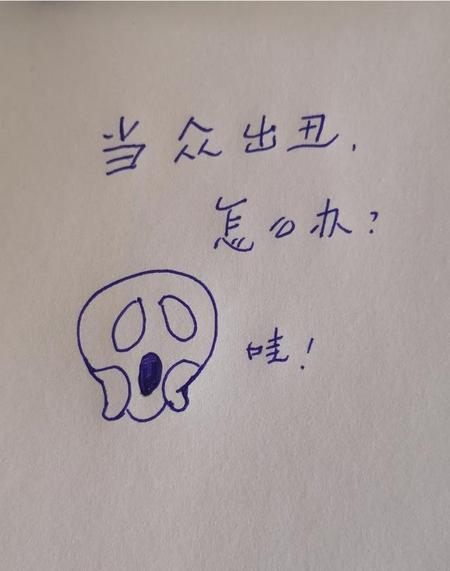 当众出丑.
怎么办?
哇!